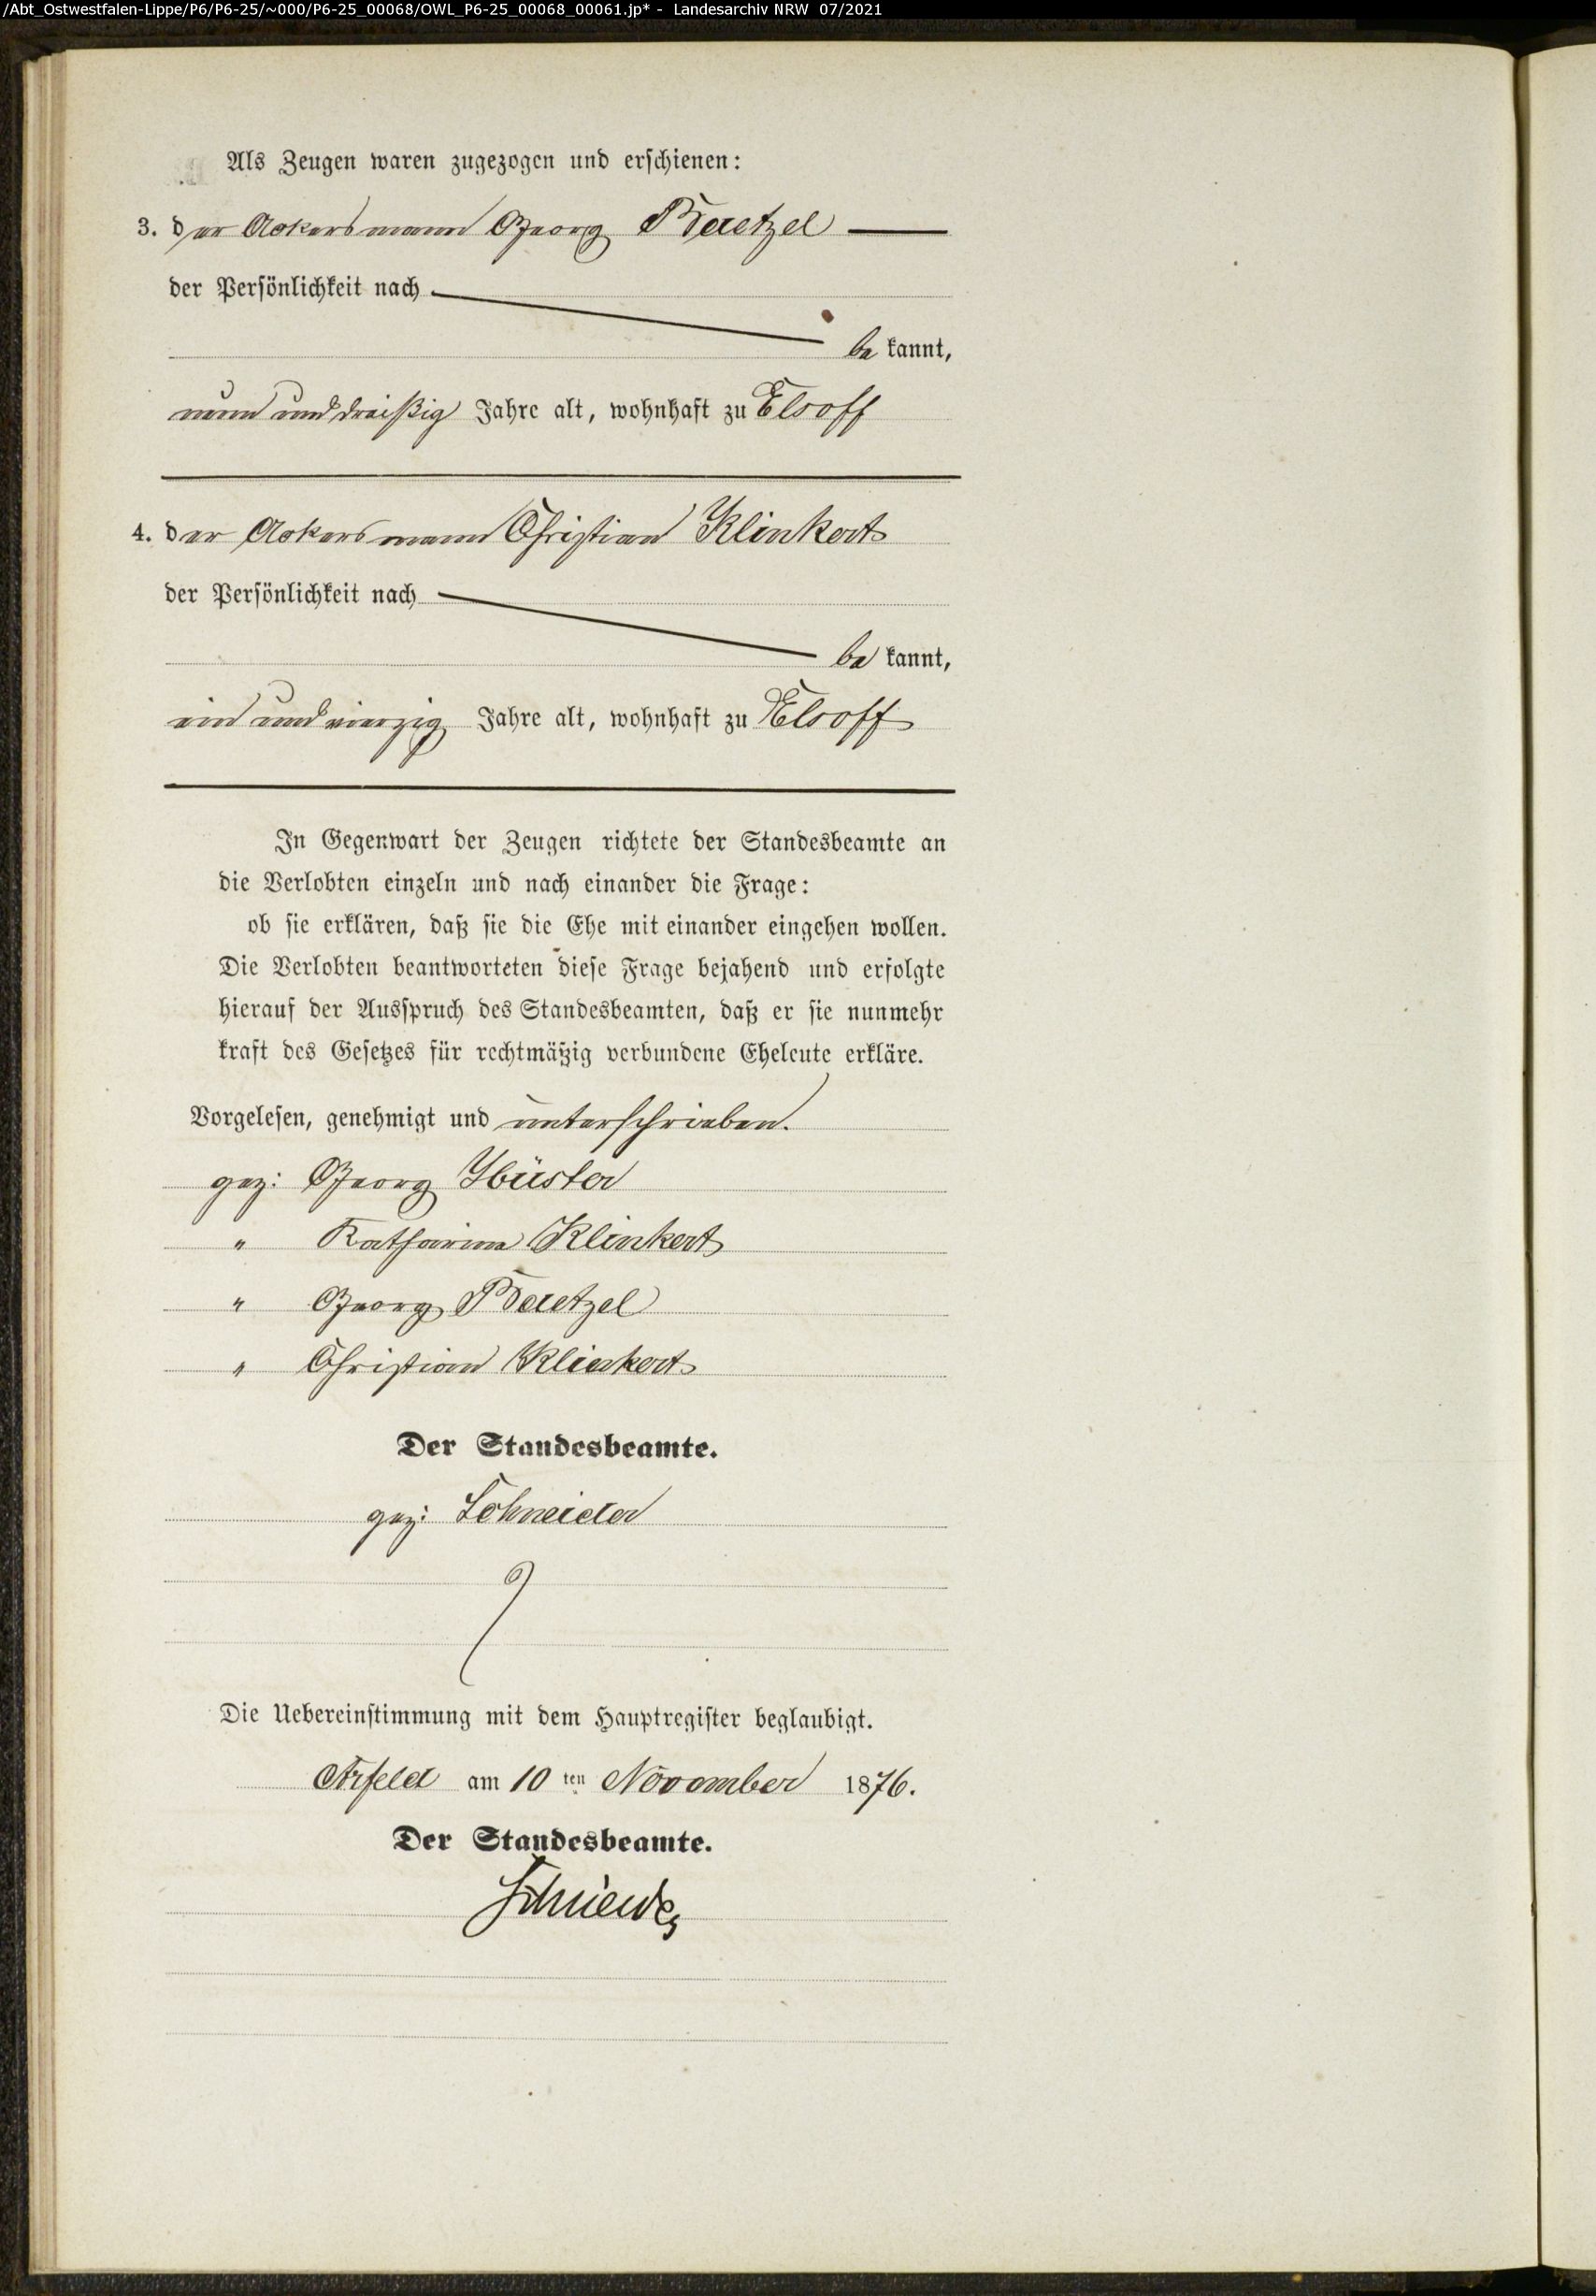 /Abt_Ostwestfalen-Lippe/P6/P6-25/~000/P6-25_00068/OWL_P6-25_00068_00061.jp* - Landesarchiv NRW 07/2021
Als Zeugen waren zugezogen und erschienen:
3. der Ackersmann Georg Baetzel
der Persönlichkeit nach
be kannt,
neun und dreißig Jahre alt, wohnhaft zu Elsoff
4. der Ackersmann Christian Klinkert
der Persönlichkeit nach
be kannt,
ein und vierzig Jahre alt, wohnhaft zu Elsoff
In Gegenwart der Zeugen richtete der Standesbeamte an
die Verlobten einzeln und nach einander die Frage:
ob sie erklären, daß sie die Ehe mit einander eingehen wollen.
Die Verlobten beantworteten diese Frage bejahend und erfolgte
hierauf der Ausspruch des Standesbeamten, daß er sie nunmehr
kraft des Gesetzes für rechtmäßig verbundene Eheleute erkläre.
Vorgelesen, genehmigt und unterschrieben.
gez: Georg
" Katharina Klinkert
" Georg Baetzel
" Christian Klinkert
Der Standesbeamte.
gez: Schneider
Die Uebereinstimmung mit dem Hauptregister beglaubigt.
Arfeld am 10 ten November 1876.
Der Standesbeamte.
Schneider